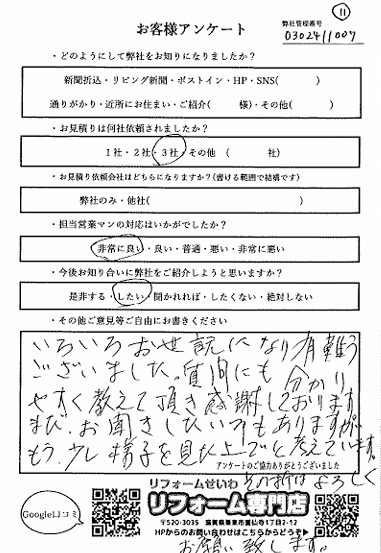 ⑪
お客様アンケート
弊社管理番号
0302411007
・どのようにして弊社をお知りになりましたか？
新聞折込・リビング新聞・ポストイン・HP・SNS( )
通りがかり・近所にお住まい・ご紹介( 様)・その他( )
・お見積りは何社依頼されましたか？
1社・2社・3社・その他 ( 社)
・お見積り依頼会社はどちらになりますか？(書ける範囲で結構です)
弊社のみ・他社( )
・担当営業マンの対応はいかがでしたか？
非常に良い・良い・普通・悪い・非常に悪い
・今後お知り合いに弊社をご紹介しようと思いますか？
是非する・したい・聞かれれば・したくない・絶対しない
・その他ご意見等ご自由にお書きください
いろいろお世話になり有難う
ございました。質問にも分かり
やすく教えて頂き感謝しております
また、お聞きしたい もありますが
もう少し様子を見た上でと考えています。
アンケートのご協力ありがとうございました
その折はよろしく
お願い致します。
Google口コミ
リフォームせいわ
リフォーム専門店
〒520-3035 滋賀県栗東市霊仙寺1丁目2-12
HPからのお問い合わせはこちらからどうぞ▶